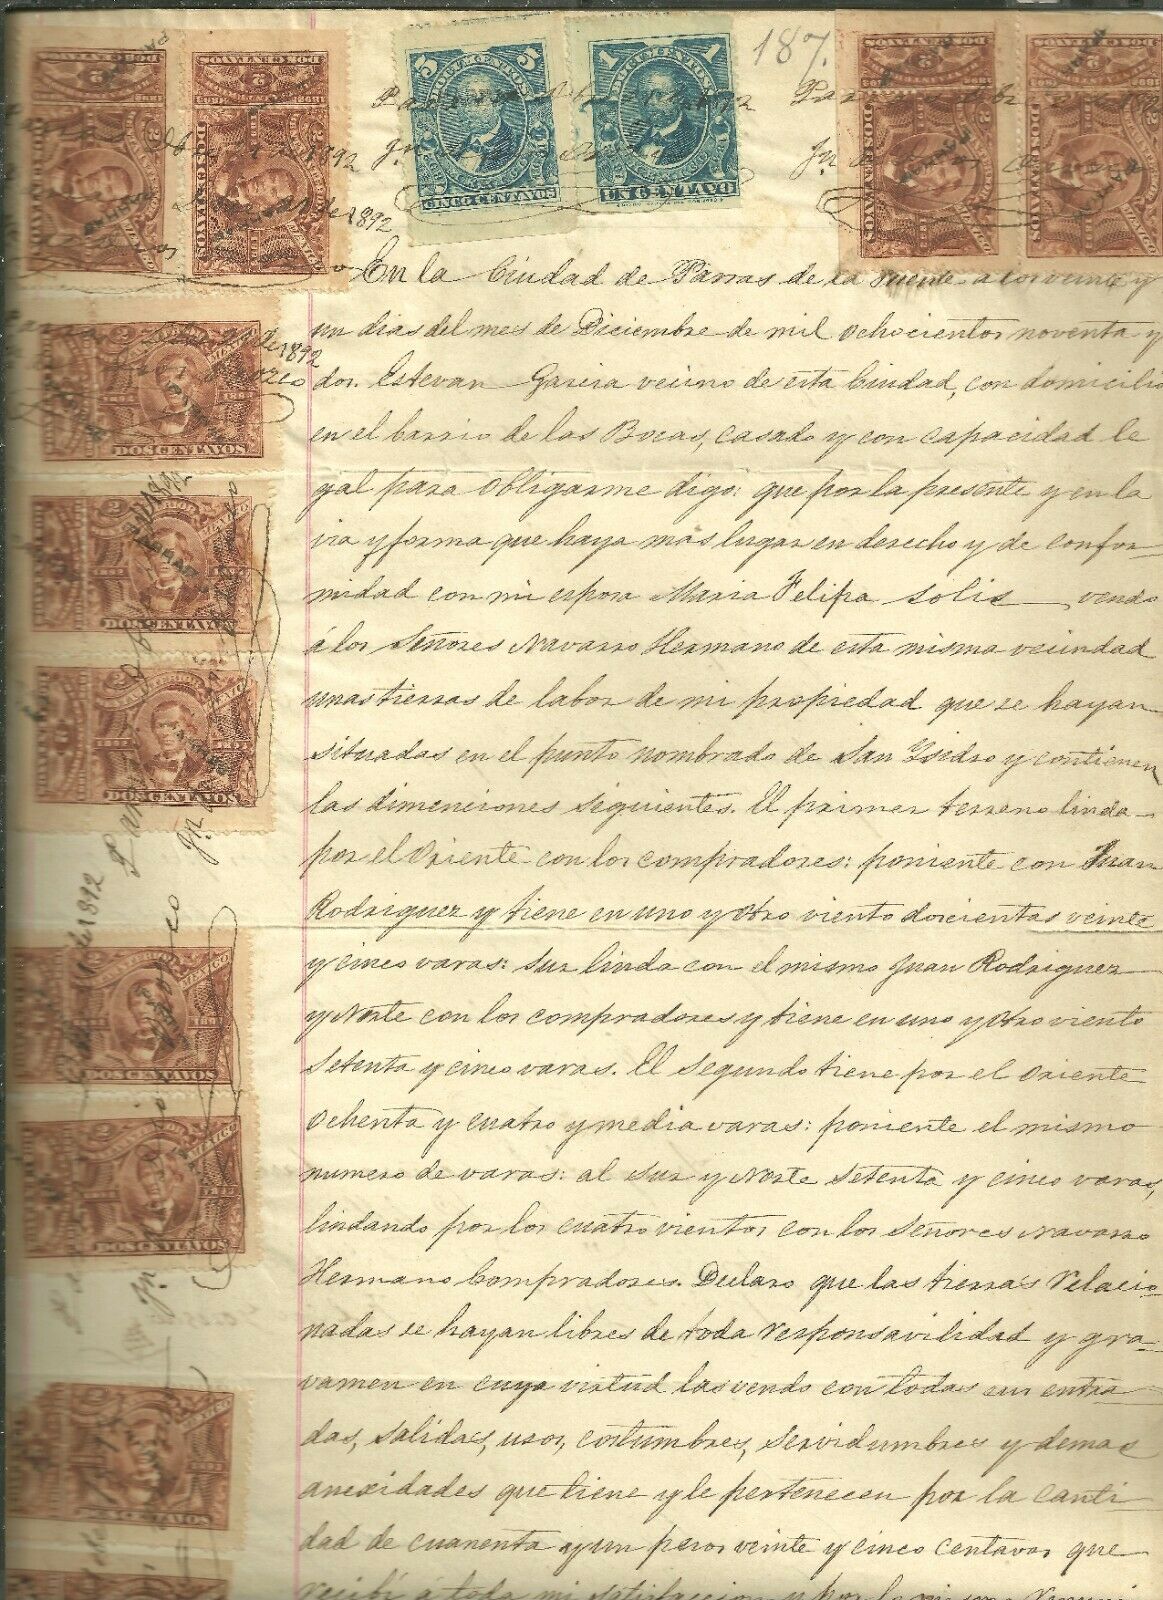 187.
DOCUMENTOS
5 5
CINCO CENTAVOS
DOCUMENTOS
1 1
UN CENTAVO
DOS CENTAVOS
DOS CENTAVOS
MEXICO
DOS CENTAVOS
DOS CENTAVOS
MEXICO
DOS CENTAVOS
MEXICO
DOS CENTAVOS
MEXICO
DOS CENTAVOS
MEXICO
DOS CENTAVOS
MEXICO
DOS CENTAVOS
MEXICO
1892
1892
1892
En la Ciudad de Parras de la Fuente a los veinte y
un dias del mes de Diciembre de mil ochocientos noventa y
dos. Estevan Garcia vecino de esta Ciudad, con domicilio
en el barrio de las Bocas, casado y con capacidad le
gal para obligarme digo: que por la presente y en la
via y forma que haya mas lugar en derecho y de confor-
midad con mi esposa Maria Felipa Solis vendo
á los Señores Navarro Hermano de esta misma vecindad
unas tierras de labor de mi propiedad que se hayan
situadas en el punto nombrado de San Ysidro y contienen
las dimenciones siguientes. El primer terreno linda-
por el Oriente con los compradores: poniente con Juan
Rodriguez y tiene en uno y otro viento docientas veinte
y cinco varas: sur linda con el mismo Juan Rodriguez
y Norte con los compradores y tiene en uno y otro viento
setenta y cinco varas. El segundo tiene por el Oriente
Ochenta y cuatro y media varas: poniente el mismo
numero de varas: al sur y Norte setenta y cinco varas,
lindando por los cuatro vientos con los Señores Navarro
Hermano Compradores. Declaro que las tierras relacio-
nadas se hayan libres de toda responsavilidad y gra-
vamen en cuya virtud las vendo con todas sus entra-
das, salidas, usos, costumbres, servidumbres y demas
anexidades que tiene y le pertenecen por la canti
dad de cuarenta y un pesos veinte y cinco centavos que
recibí á toda mi satisfaccion y por la misma